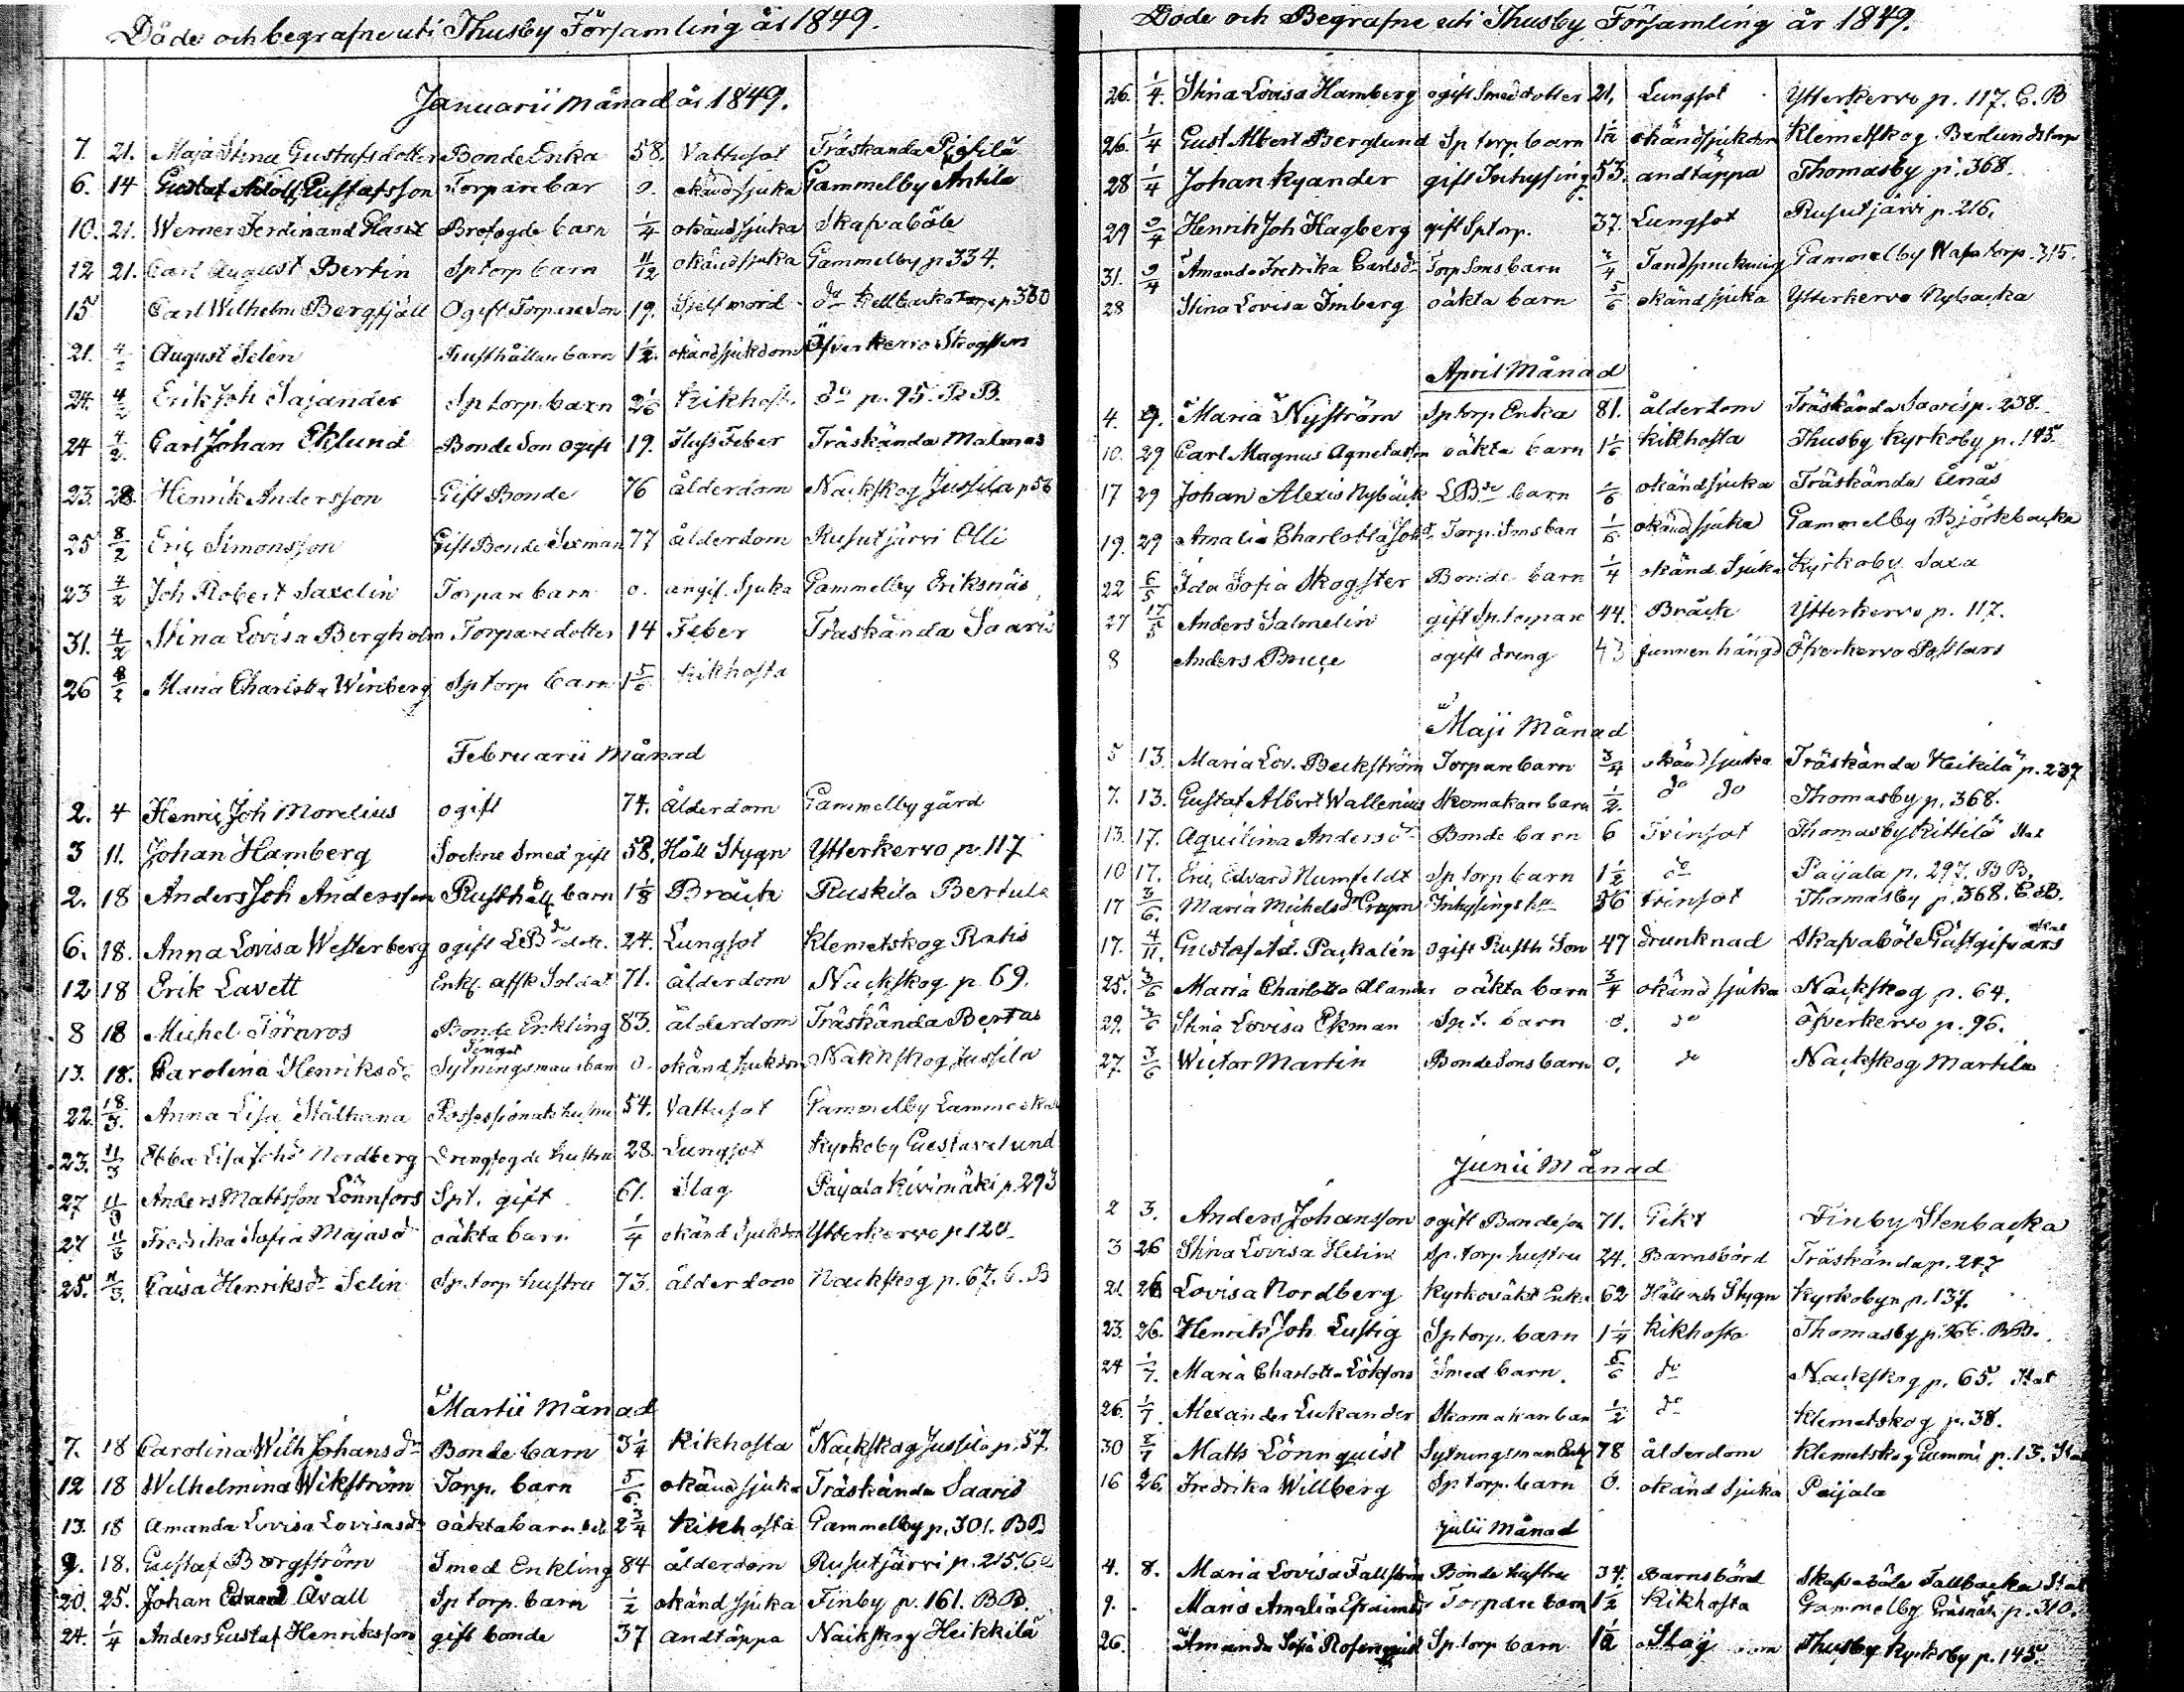 Döde och begrafne uti Thusby Församling år 1849.
Januarii Månad år 1849.
7. 21. Maja Stina Gustafsdotter Bonde Enka 58. Vattusot Träskanda Pietilä
6. 14 Gustaf Adolf Gustafsson Torpare bar 0. okänd sjuka Gammelby Antila
10. 21. Werner Ferdinand Brofogde barn 1/4 okänd sjuka Skafvaböle
12 21. Carl August Bertin Sptorp barn 11/12 okänd sjuka Gammelby p 334.
15 Carl Wilhelm Bergfjäll Ogift Torpare Son 19. Sjelfmord do Kellbacka Torp p 330
21. 4/2 August Selén Rusthållare barn 1 1/2. okänd sjukdom Öfverkervo Skogsters
24. 4/2 Erik Joh Sajander Sp torp. barn 2 1/6 Kikhost. do p. 95. B B.
24 4/2. Carl Johan Eklund Bonde Son ogift 19. Fluss Feber Träskända Malmas
23. 28. Henrik Andersson Gift Bonde 76 ålderdom Nackskog Jussila p 56
25 8/2 Eric Simonsson Gift Bonde Sexman 77 ålderdom Rusutjärvi Olli
23 4/2 Joh Robert Saxelin Torpare barn 0. angif. Sjuka Gammelby Eriksnäs
31. 4/2 Stina Lovisa Bergholm Torpare dotter 14 Feber Träskända Saaris
26 8/2 Maria Charlotta Winberg Sp torp barn 1 5/6 Kikhosta
Februarii Månad
2. 4 Henric Joh Morelius ogift 74. ålderdom Gammelby gård
3 11. Johan Hamberg Sockne Smed gift 58. Håll Stygn Ytterkervo p. 117
2. 18 Anders Joh Andersson Rusthåll barn 1 1/8 Bråck Ruskila Bertula
6. 18. Anna Lovisa Westerberg ogift LBde dott. 24. Lungsot Klemetskog Ratis
12 18 Erik Lavett Enkl. affsk Soldat 71. ålderdom Nackskog p. 69.
8 18 Michel Törnros Bonde Enkling 83. ålderdom Träskända Bertas
13. 18. Carolina Henriksdr Sytningsmans barn 0. okänd sjukdom Nakkskog Jussila
22. 18/3. Anna Lisa Stålhana Possessionats hustru 54. Vattusot Gammelby
23. 11/3 Ebba Lisa Johsdr Nordberg Drengfogde hustru 28. Lungsot Kyrkoby Gustavelund
27 11/3 Anders Mattsson Lönnfors Spt. gift 61. Slag Paijala Kivimäki p. 293
27 11/3 Fredrika Sofia Majasdr oäkta barn 1/4 okänd Sjukdom Ytterkervo p 120
25. 11/3. Caisa Henriksdr Selin Sp. torp hustru 73. ålderdom Nackskog p. 67. C. B
Martii Månad
7. 18 Carolina Wilh Johansdr Bonde barn 3 1/4 Kikhosta Nackskog Jussila p. 57.
12 18 Wilhelmina Wikström Torp. barn 5/6. okänd sjuka Träskända Saaris
13. 18 Amanda Lovisa Lovisasdr oäkta barn 2 3/4 Kikhosta Gammelby p. 301. BB
9. 18. Gustaf Borgström Smed Enkling 84 ålderdom Rusutjärvi p. 215.
20. 25. Johan Edvard Åvall Sp torp. barn 1/2 okänd sjuka Finby p. 161. BB.
24. 1/4 Anders Gustaf Henriksson gift bonde 37 andtäppa Nackskog Heikkilä
Döde och Begrafne uti Thusby Församling år 1849.
26. 1/4. Stina Lovisa Hamberg ogift Smed dotter 21. Lungsot Ytterkervo p. 117. C. B
26. 1/4 Gust Albert Berglund Sp torp barn 1 1/2 okänd sjukdom Klemetskog Berlundstorp
28 1/4 Johan Kyander gift Inhysing 53. andtäppa Thomasby p. 368.
29 9/4 Henrik Joh Hagberg gift Sptorp. 37. Lungsot Rusutjärvi p. 216.
31. 9/4 Amanda Fredrika Carlsdr Torp Sons barn 3/4 Tandsprickning Gammelby p. 315.
28 Stina Lovisa Imberg oäkta barn 5/6 okänd sjuka Ytterkervo Nybacka
April Månad
4. 9. Maria Nyström Sp torp Enka 81. ålderdom Träskända Saaris p. 238.
10. 29 Carl Magnus Agnetasson oäkta barn 1 1/6 Kikhosta Thusby Kyrkoby p. 145.
17 29 Johan Alexis Nybäck LBde barn 1/6 okänd sjuka Träskända Ånäs
19. 29 Amalia Charlotta Johsdr Torp. Sons bar 1/6 okänd sjuka Gammelby Björkbacka
22 6/5 Ida Sofia Skogster Bonde barn 1/4 okänd Sjuka Kyrkoby Saxa
27 17/5 Anders Salmelin gift Sp. torpare 44. Bräck Ytterkervo p. 117.
8 Anders Bruce ogift dreng 43 funnen hängd Öfverkervo
Maji Månad
5 13. Maria Lov. Beckström Torpare barn 3/4 okänd sjuka Träskända Heikilä p. 237
7. 13. Gustaf Albert Wallenius Skomakare barn 1/2. do do Thomasby p. 368.
13. 17. Aquilina Andersdr Bonde barn 6 Tvinsot Thomasby Kittilä Stat
10 17. Eric Edvard Numfeldt Sp torp barn 1 1/2 do Paijala p. 297. BB.
17 3/6. Maria Michelsdr Inhysings hu 36 tvinsot Thomasby p. 368. C. B.
17. 4/11. Gustaf Ad. Packalén ogift Rusth Son 47 drunknad Skafvaböle Gästgifvars
25. 3/6 Maria Charlotta Alander oäkta barn 3/4 okänd sjuka Nackskog p. 64.
29. 3/6 Stina Lovisa Ekman Sp. t. barn 0. do Öfverkervo p. 96.
27. 3/6 Wictor Martin Bonde Sons barn 0. do Nackskog Martila
Junii Månad
2 3. Anders Johansson ogift Bondeson 71. Gikt Finby Stenbacka
3 26 Stina Lovisa Helin Sp. torp. hustru 24. Barnsbörd Träskända p. 247
21. 26 Lovisa Nordberg Kyrkoväkt Enka 62 Håll och Stygn Kyrkobyn p. 137.
23. 26. Henrik Joh Lustig Sp torp. barn 1 1/4 Kikhosta Thomasby p. BB.
24 1/7. Maria Charlotta Lökfors Smed barn. 5/6 do Nackskog p. 65. Stat
26. 1/7. Alexander Lukander Skomakare bar 1/2 do Klemetskog p. 38.
30 8/7 Matts Lönnquist Sytningsman Enkl 78 ålderdom Klemetskog Gummi p. 15. Stat
16 26. Fredrika Willberg Sp torp. barn 0. okänd sjuka Paijala
Julii Månad
4. 8. Maria Lovisa Fallström Bonde hustru 34. Barnsbörd Skafvaböle Tallbacka Stat
9. Maria Amalia Efraimsdr Torpare barn 1 1/2 Kikhosta Gammelby Gräsnäs p. 310.
26. Amanda Sofia Rosenqvist Sp torp barn 1 1/2 Slag Thusby Kyrkoby p. 145.